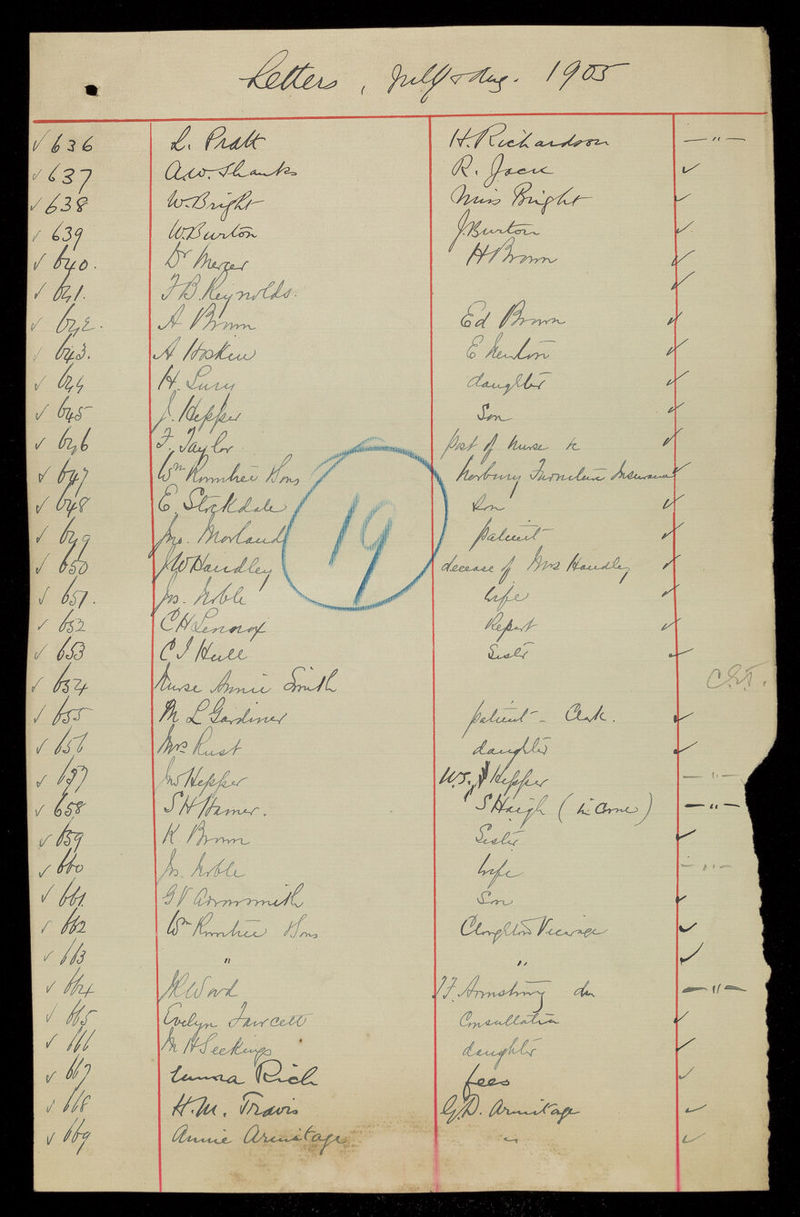 Letters, July & Aug. 1905
✓ 636 L. Pratt H. Richardson — " —
✓ 637 A.W. Shanks R. Jack ✓
✓ 638 W. Bright Miss Bright ✓
✓ 639 W. Burton J. Burton ✓
✓ 640. Dr Mercer H Brown ✓
✓ 641. F B. Reynolds. ✓
✓ 642. A Brown Ed Brown ✓
643. A Hoskin E Newton ✓
✓ 644 H. Lury daughter ✓
✓ 645 J. Hepper Son ✓
✓ 646 F. Taylor Post of Nurse &c ✓
✓ 647 Wm Rowntree & Sons Norbury Furniture Insurance ✓
✓ 648 E. Stockdale Son ✓
✓ 649 Jno. Morland patient ✓
✓ 650 J W Handley decease of Mrs Handley ✓
✓ 651. Jos. Noble Wife ✓
✓ 652 C H Lennox Report ✓
✓ 653 C J Hull Sister ✓
✓ 654 Nurse Annie Smith
✓ 655 M L Gardiner patient - Clark. ✓
✓ 656 Mrs Rust daughter ✓
✓ 657 Jno Hepper W.S. Hepper — " —
✓ 658 S H Hamer. S Haigh (in come) — " —
✓ 659 K Brown Sister ✓
✓ 660 Jos. Noble Wife — " —
✓ 661. G V Arrowsmith Son ✓
✓ 662 Wm Rowntree & Sons Cloughton Vicarage ✓
✓ 663 " " ✓
✓ 664 J R Wood J F. Armstrong — " —
✓ 665 Evelyn Fawcett Consultation ✓
✓ 666 M H Seekings daughter ✓
✓ 667 Emma Rich fees ✓
✓ 668 H. M. Travis G.D. Armitage ✓
✓ 669 Annie Armitage " ✓
19